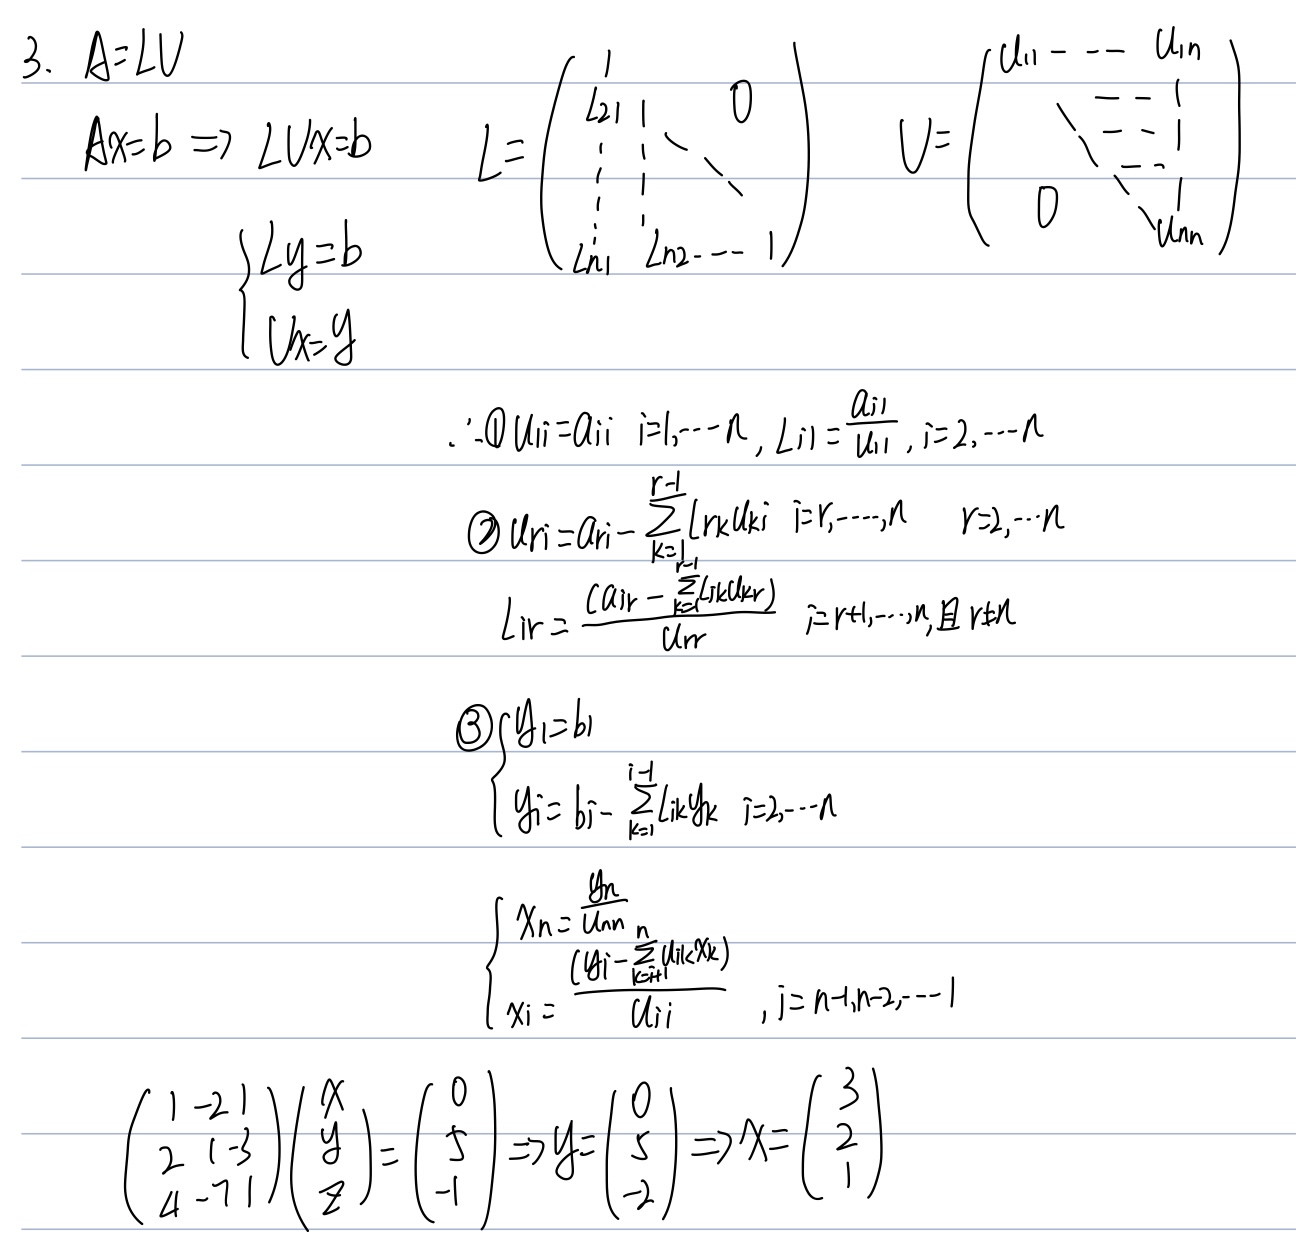 3. A=LU
Ax=b ⇒ LUx=b
L=( 1 0
L21 1
Ln1 Ln2---- 1 )
U=( U11 - -- U1n
0 Unn )
{ Ly=b
Ux=y
∴① U1i=a1i i=1,---n, Li1=ai1/U11, i=2,---n
② Uri=ari-∑_{k=1}^{r-1} LrkUki i=r,----,n r=2,--n
Lir=(air-∑_{k=1}^{r-1}LikUkr)/Urr i=r+1,---,n,且r≠n
③ { y1=b1
yi=bi-∑_{k=1}^{i-1}Likyk i=2,---n
{ xn=yn/Unn
xi=(yi-∑_{k=i+1}^{n}Uikxk)/Uii , i=n-1,n-2,---1
(1 -2 1; 2 1 -3; 4 -7 1)(x; y; z)=(0; 5; -1)⇒y=(0; 5; -2)⇒x=(3; 2; 1)